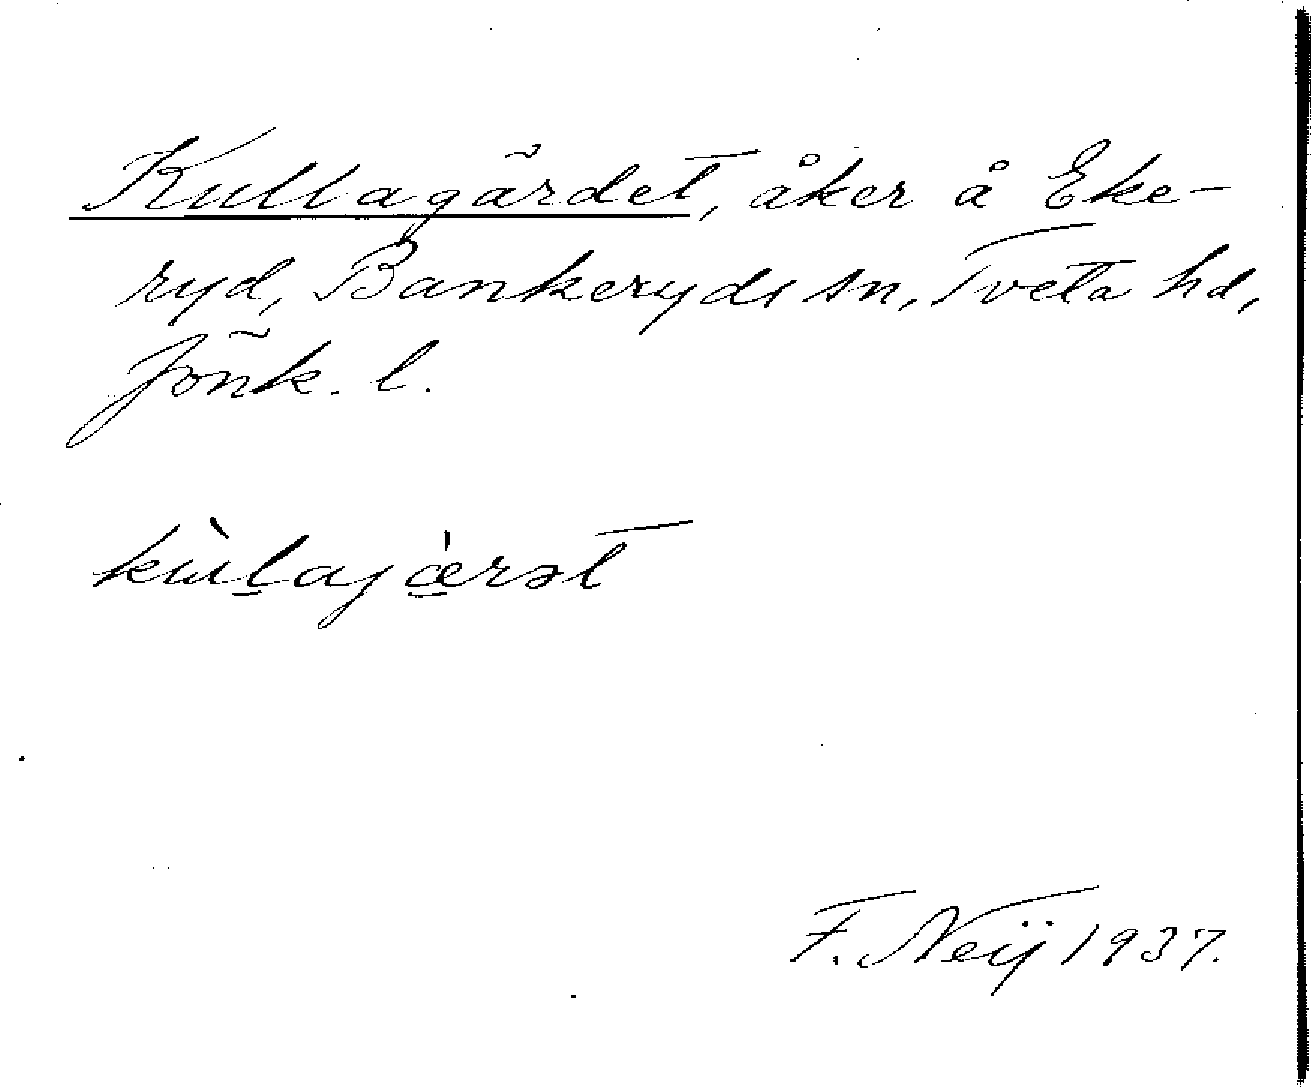 Kullagärdet, åker å Eke-
ryd, Bankeryds sn, Tveta hd,
Jönk. l.
kùlajæ̀rət
F. Neij 1937.